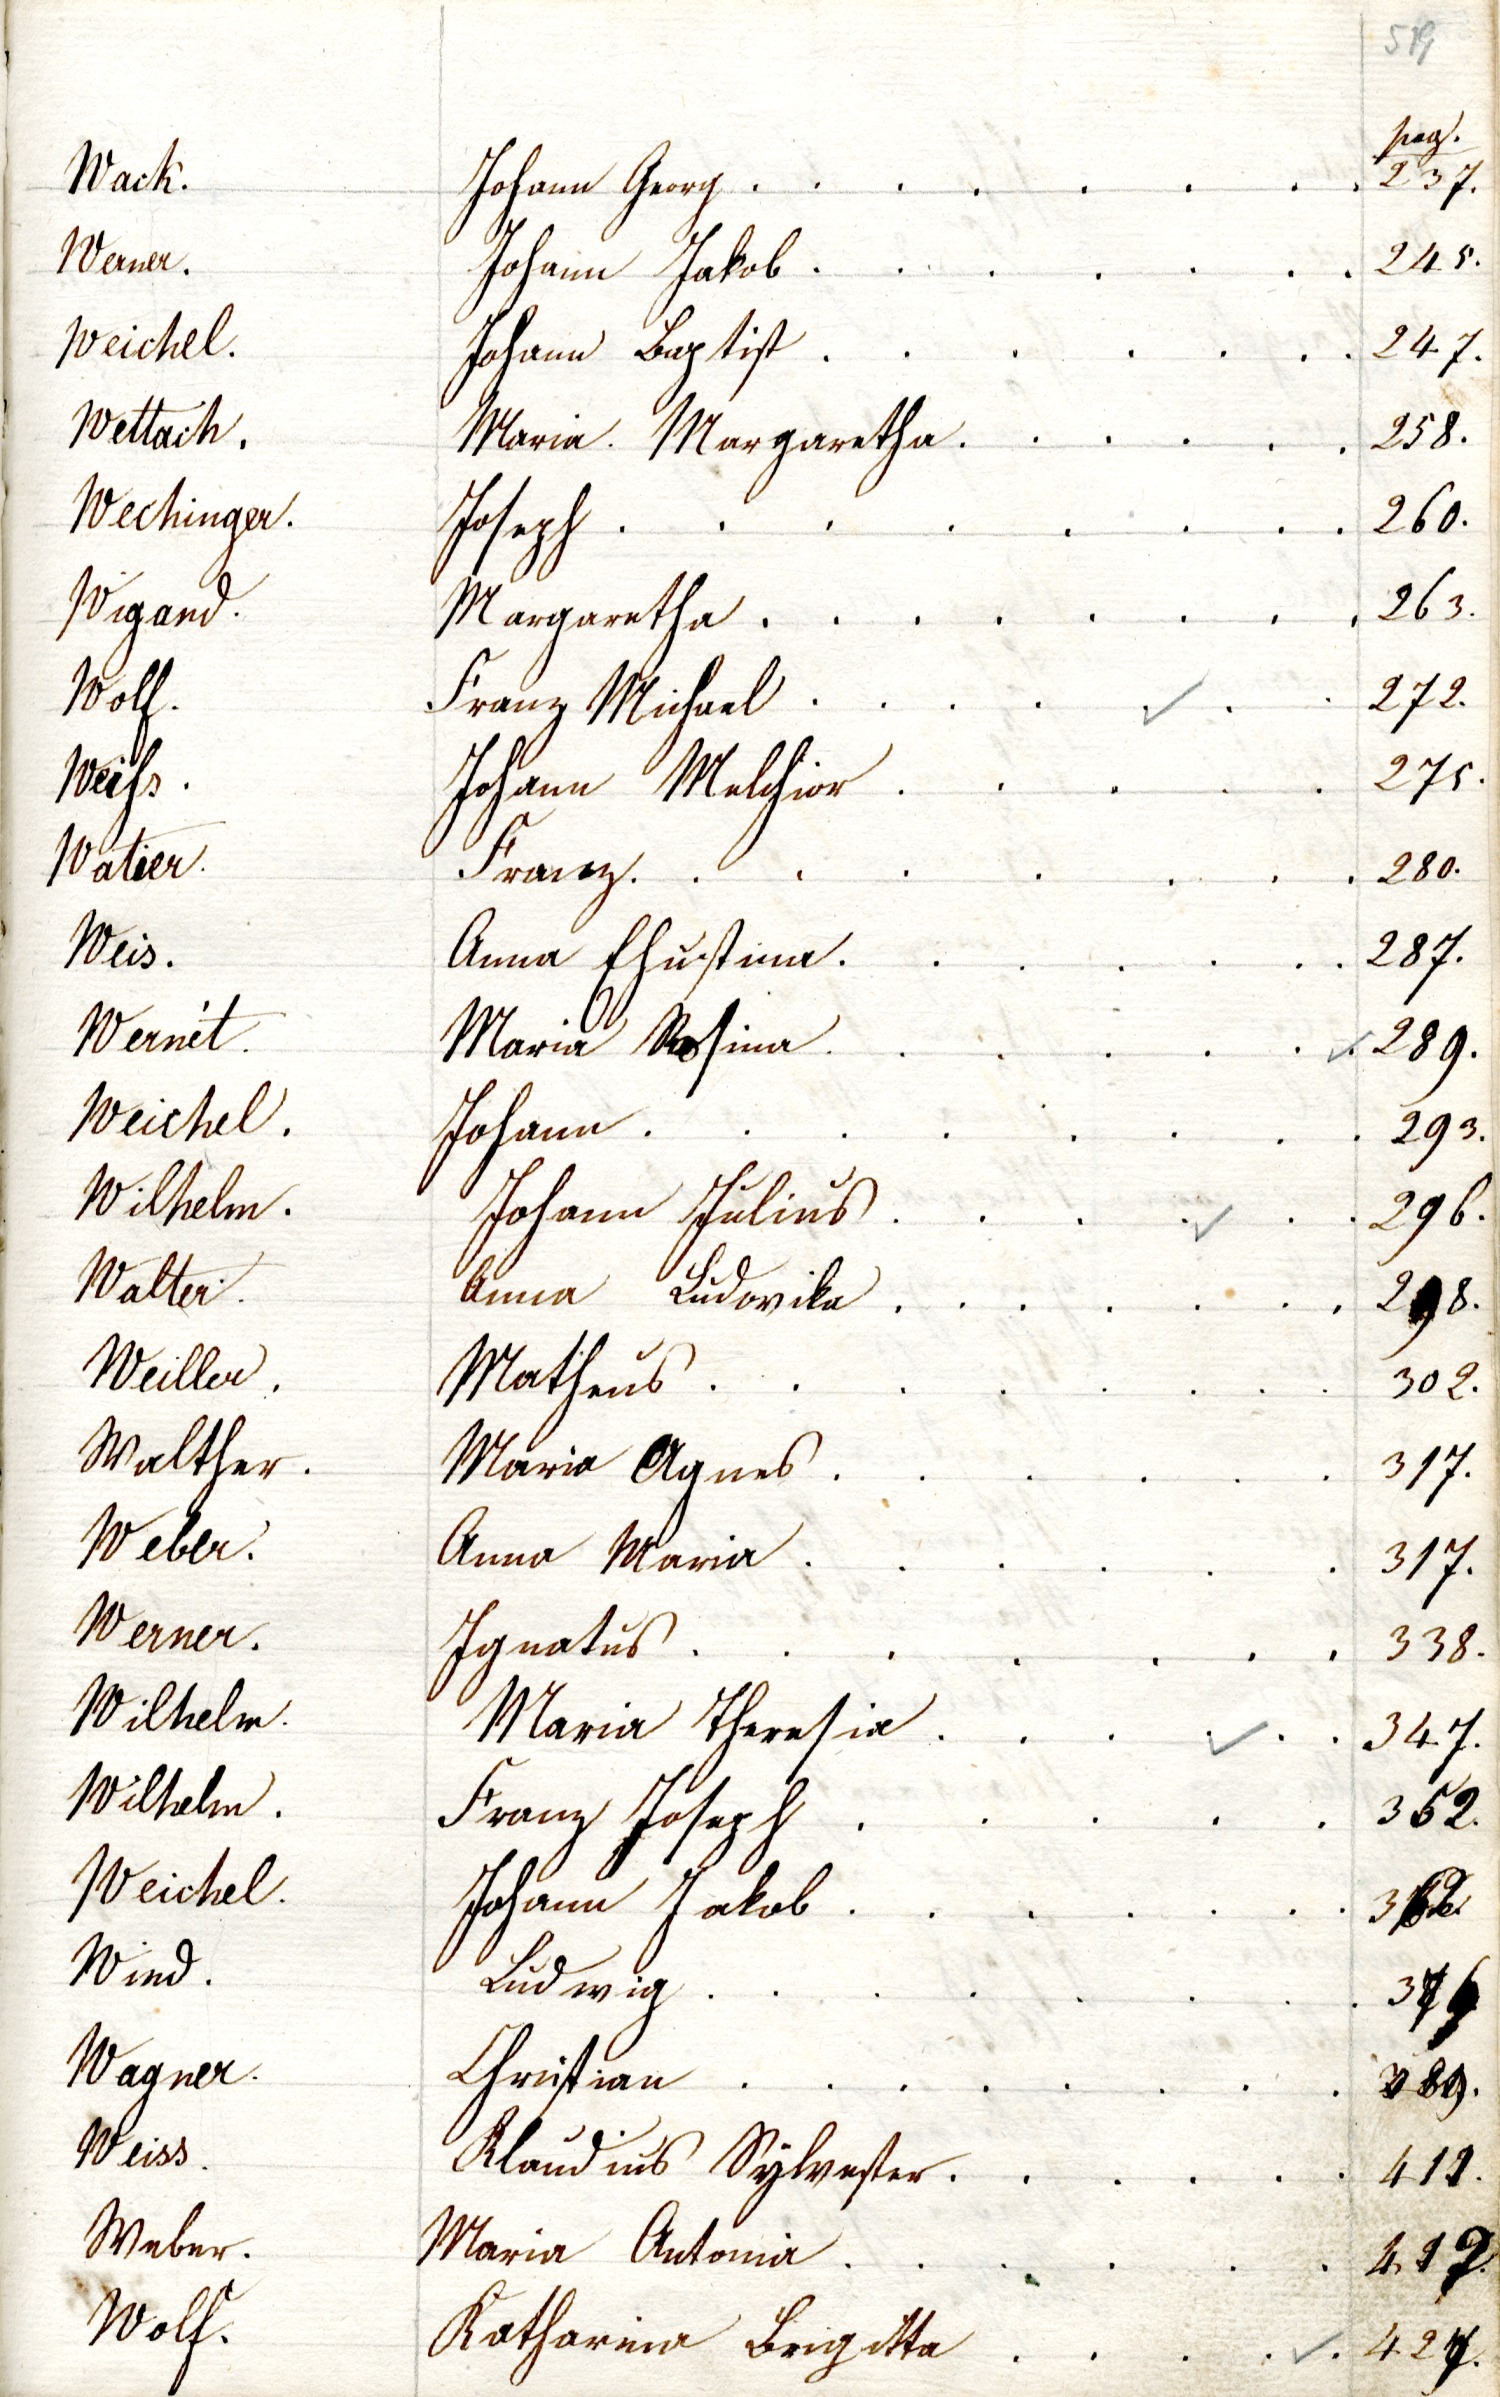 519
pag.
Wack. Johann Georg . . . . . . . . 237.
Werner. Johann Jakob . . . . . . 245.
Weichel. Johann Baptist . . . . . . . 247.
Wettach. Maria. Margaretha . . . . . . 258.
Wechinger. Joseph . . . . . . . . 260.
Wigand. Margaretha . . . . . . . . 263.
Wolf. Franz Michael . . . . ✓ . . 272.
Weihs. Johann Melchior . . . . . 275.
Watier. Franz . . . . . . . . 280.
Weis. Anna Christina . . . . . . . 287.
Wernét. Maria Rosina . . . . . . ✓ . 289.
Weichel. Johann . . . . . . . . 293.
Wilhelm. Johann Julius . . . . ✓ . . 296.
Walter. Anna Ludovika . . . . . . . 298.
Weiller. Matheus . . . . . . . . 302.
Walther. Maria Agnes . . . . . . 317.
Weber. Anna Maria . . . . . . 317.
Werner. Ignatus . . . . . . . 338.
Wilhelm. Maria Theresia . . . ✓ . . 347.
Wilhelm. Franz Joseph . . . . . 352.
Weichel. Johann Jakob . . . . . . .
Wind. Ludwig . . . . . . . .
Wagner. Christian . . . . . . . . 389.
Weiss. Klaudius Sylvester . . . . . . 412.
Weber. Maria Antonia . . . . . .
Wolf. Katharina Brigitta . . . . ✓ . 427.